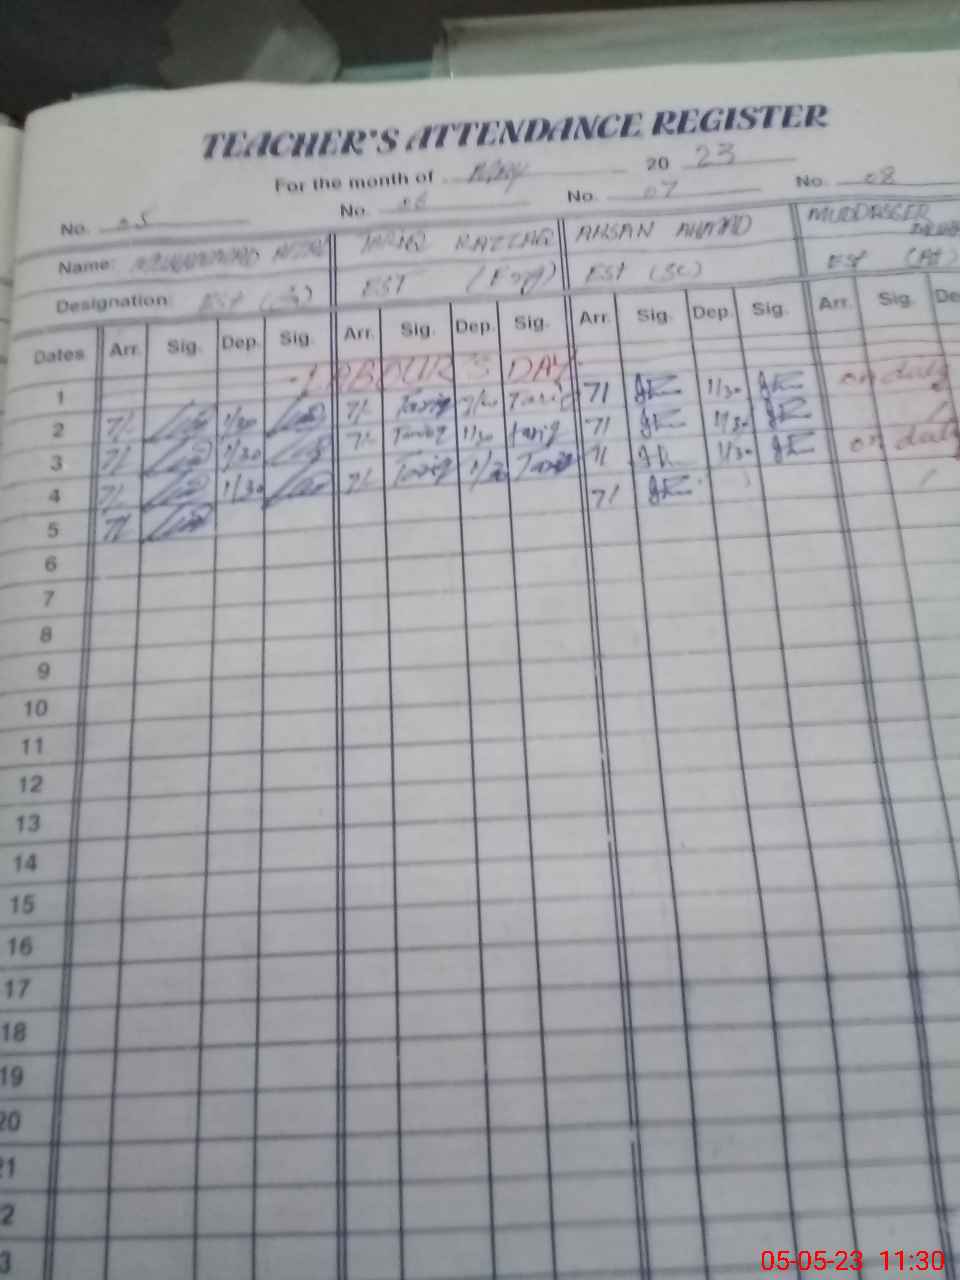 TEACHER'S ATTENDANCE REGISTER
For the month of May 20 23
No. 05 No. 06 No. 07 No. 08
Name: MUHAMMAD TARIQ RAZZAQ AHSAN AHMAD MUDDASSER
Designation: EST EST (Eng) EST (SC) EST
Dates Arr. Sig. Dep. Sig. Arr. Sig. Dep. Sig. Arr. Sig. Dep. Sig. Arr. Sig. De
LABOUR'S DAY
1
2 7/ 1/30 7/ Tariq Tariq 7/ 1/30 on duty
3 7/ 1/30 7/ Tariq 1/30 Tariq 7/ 1/30
4 7/ 1/30 7/ Tariq 1/30 Tariq 7/ 1/30 on duty
5 7/ 7/
6
7
8
9
10
11
12
13
14
15
16
17
18
19
20
21
2
3
05-05-23 11:30